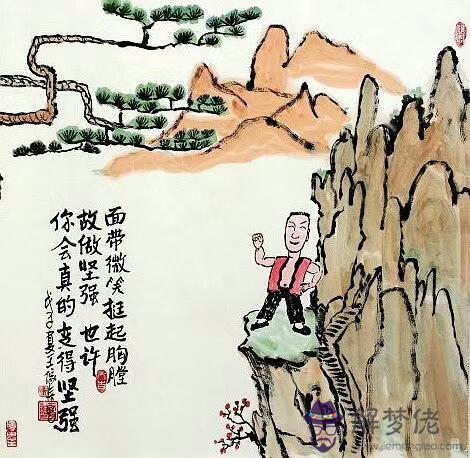 面带微笑挺起胸膛
故做坚强 也许
你会真的变得坚强
戊子夏
解梦佬